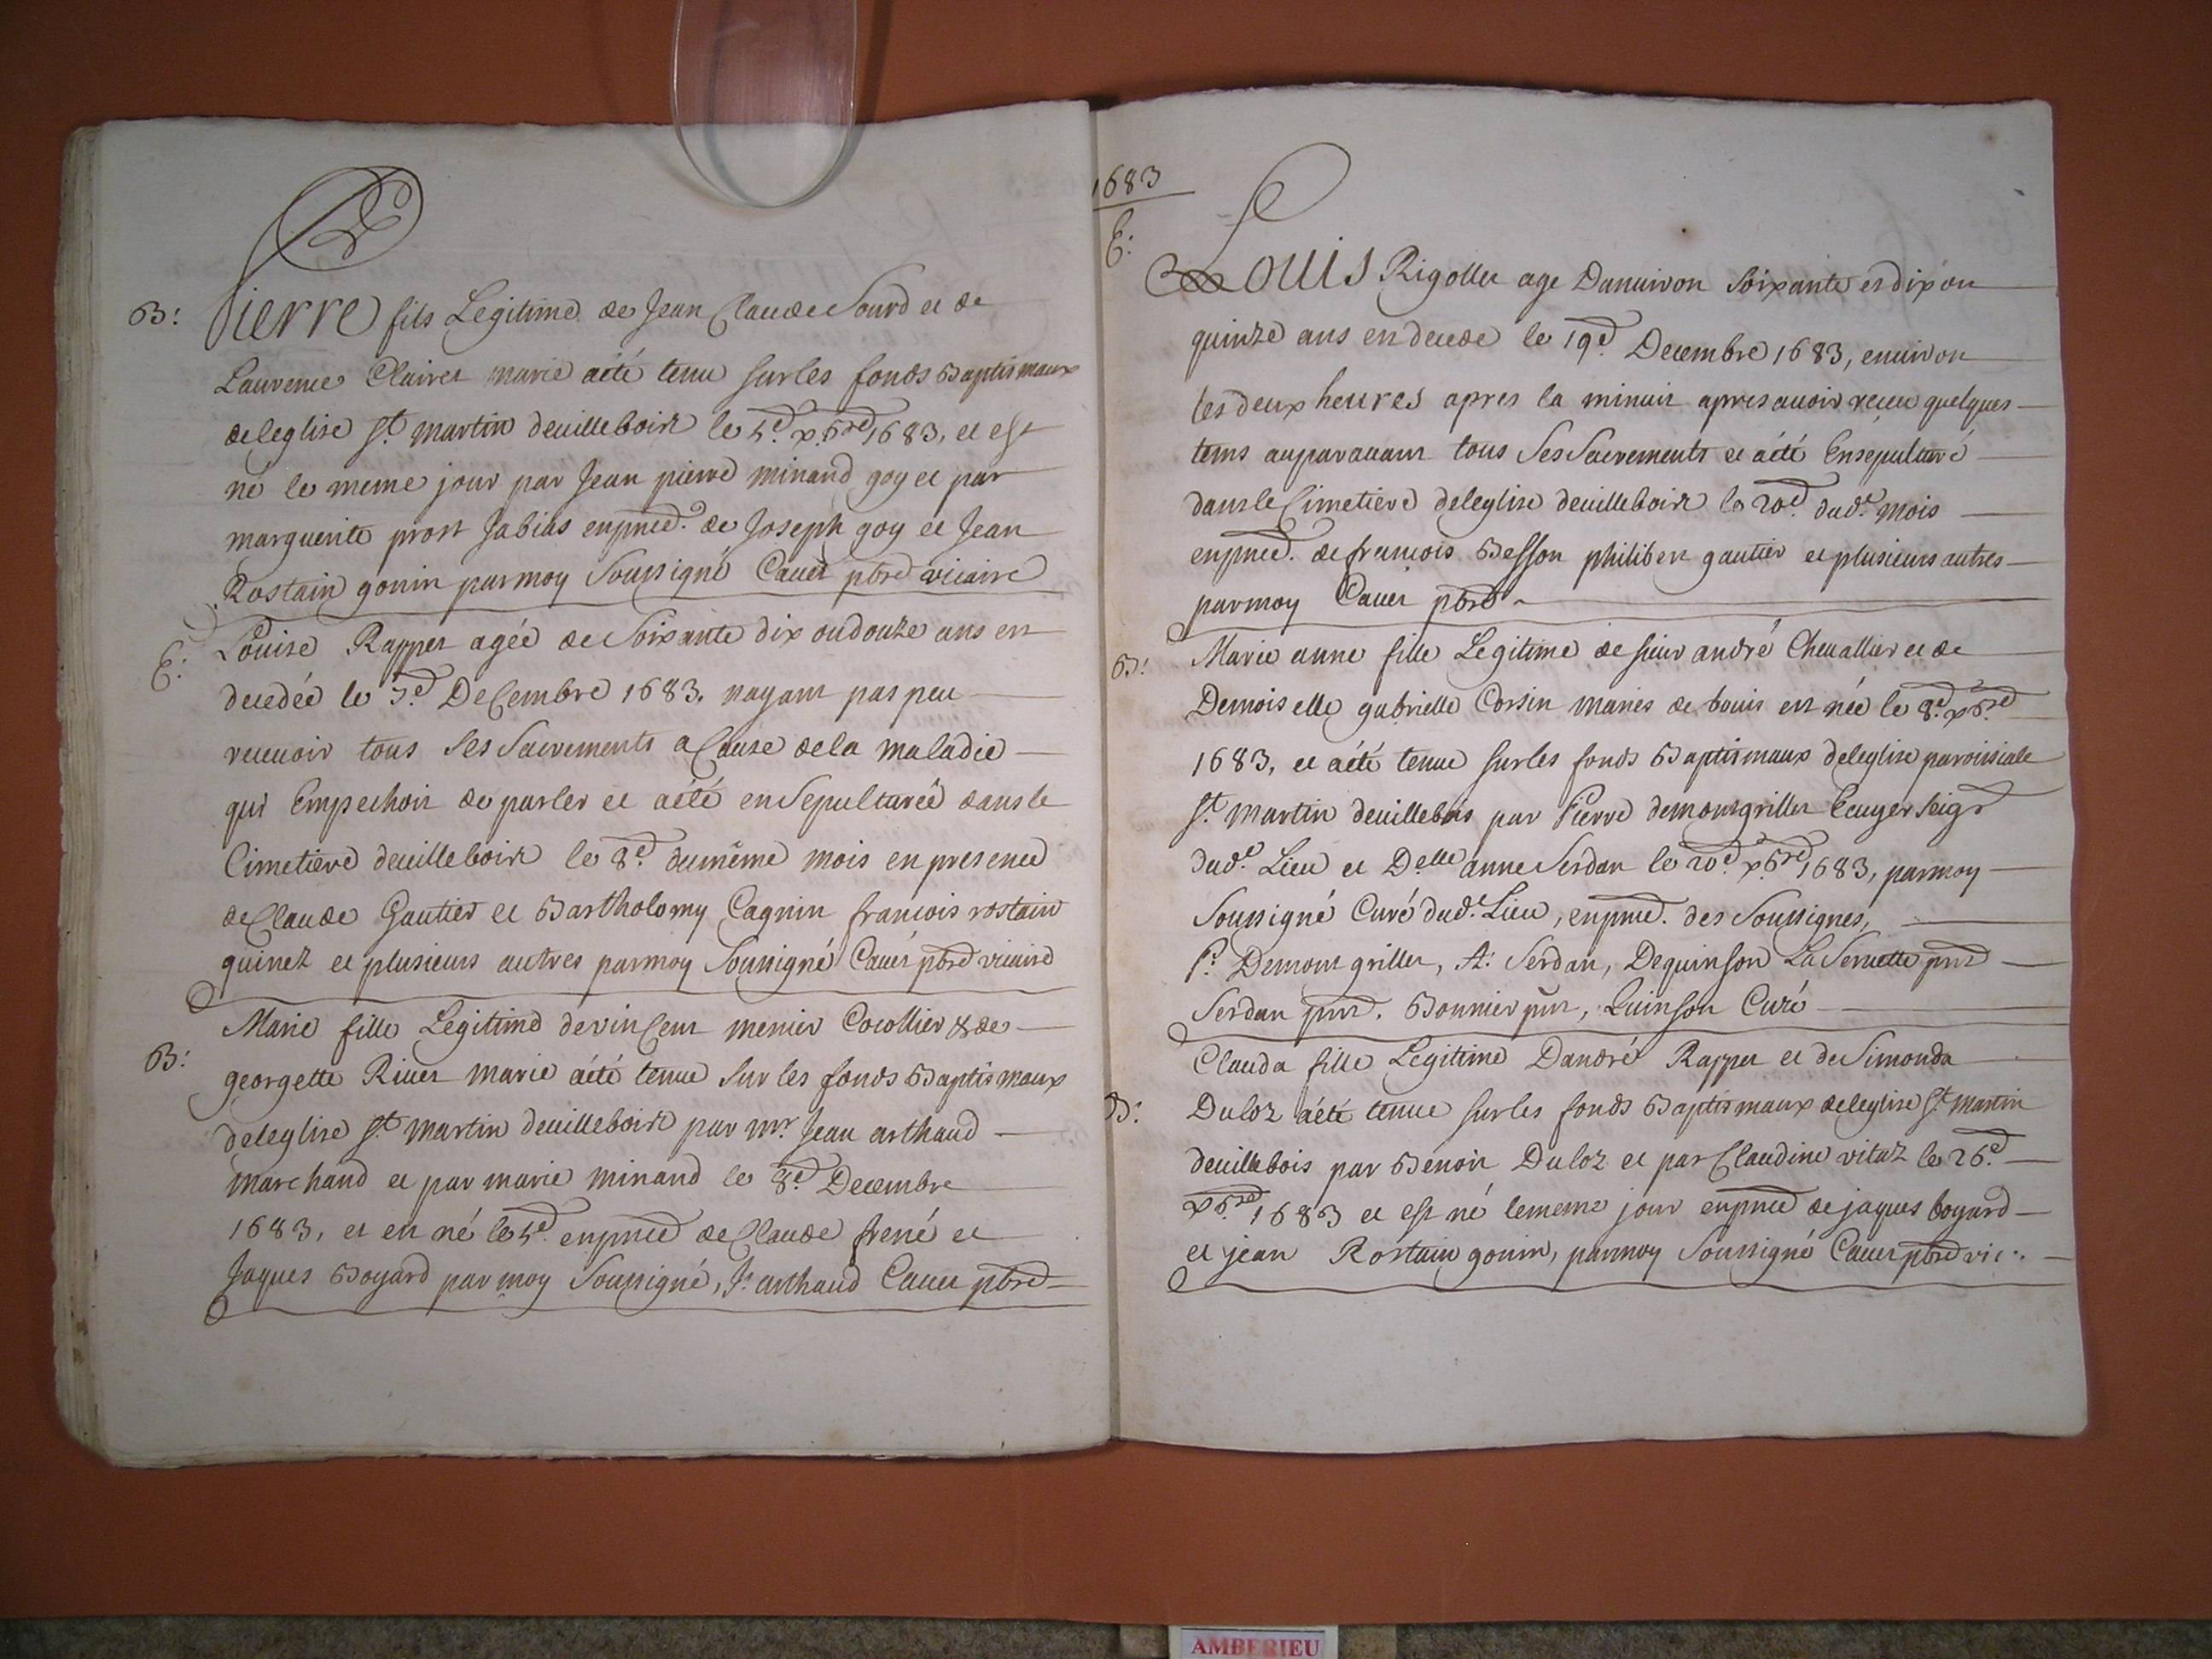 B: Pierre fils Legitime de Jean Claude Sourd et de
Laurence Clairet marié aété tenu sur les fonds Baptismaux
deleglise St. martin deuilleboix le 5e. xbre 1683, et est
né le meme jour par Jean pierre minand goy et par
marguerite prost Jabias enpnce. de Joseph goy et Jean
Rostain gonin parmoy Soussigné Cauet ptre vicaire
E: Louise Rappet agée de Soixante dix oudouze ans est
decedée le 7e. DeCembre 1683. nayant pas peu
receuoir tous les Sacrements a Cause dela maladie
qui Empechoit de parler et aété enSepulturéé dans le
Cimetiere deuilleboix le 8e. dumême mois en presence
de Claude Gautier et Bartholomy Cagnin francois rostain
quinet et plusieurs autres parmoy Soussigné Cauet ptre vicaire
Marie fille Legitime devinCent menier Cocollier & de
B: georgette Riuet marié aété tenue Sur les fonds Baptismaux
deleglise St. martin deuilleboix par mr. Jean arthaud
marchand et par marie minand le 8e. Decembre
1683, et est né le 5e. enpnce de Claude frené et
Jaques Boyard par moy Soussigné, J: arthaud Cauet ptre
1683
E: Louis Rigollet age Danuiron Soixante et dix ou
quinze ans est decede le 19e. Decembre 1683, enuiron
les deux heures apres la minuit apres auoir receu quelques
tems auparauant tous Ses Sacrements et aété Ensepulturé
dans le Cimetiere deleglise deuilleboix le 20e. dud.e mois
enpnce. de francois Besson philibert gautier et plusieurs autres
parmoy Cauet ptre
B: Marie anne fille Legitime de sieur andré Cheuallier et de
Demoiselle gabrielle Corsin mariés de bouis est née le 8e. xbre
1683, et aété tenue surles fonds Baptismaux deleglise paroissiale
St. martin deuillebois par Pierre demontgriller Ecuyer seigr
dud.e Lieu et Delle anne Serdan le 20e. xbre 1683, parmoy
Soussigné Curé dud.e Lieu, enpnce. des Soussignés,
P: Demontgriller, A: Serdan, Dequinson La Seruette pnt
Serdan pnt. Bonnier pnt, Quinson Curé
Clauda fille Legitime Dandré Rappet et de Simonda
B: Duloz aété tenue surles fonds Baptismaux deleglise St. martin
deuillebois par Benoit Duloz et par Claudine vitaz le 26e.
xbre 1683 et est né lememe jour enpnce de jaques boyard
et jean Rostain gonin, parmoy Soussigné Cauet ptre vic.
AMBERIEU